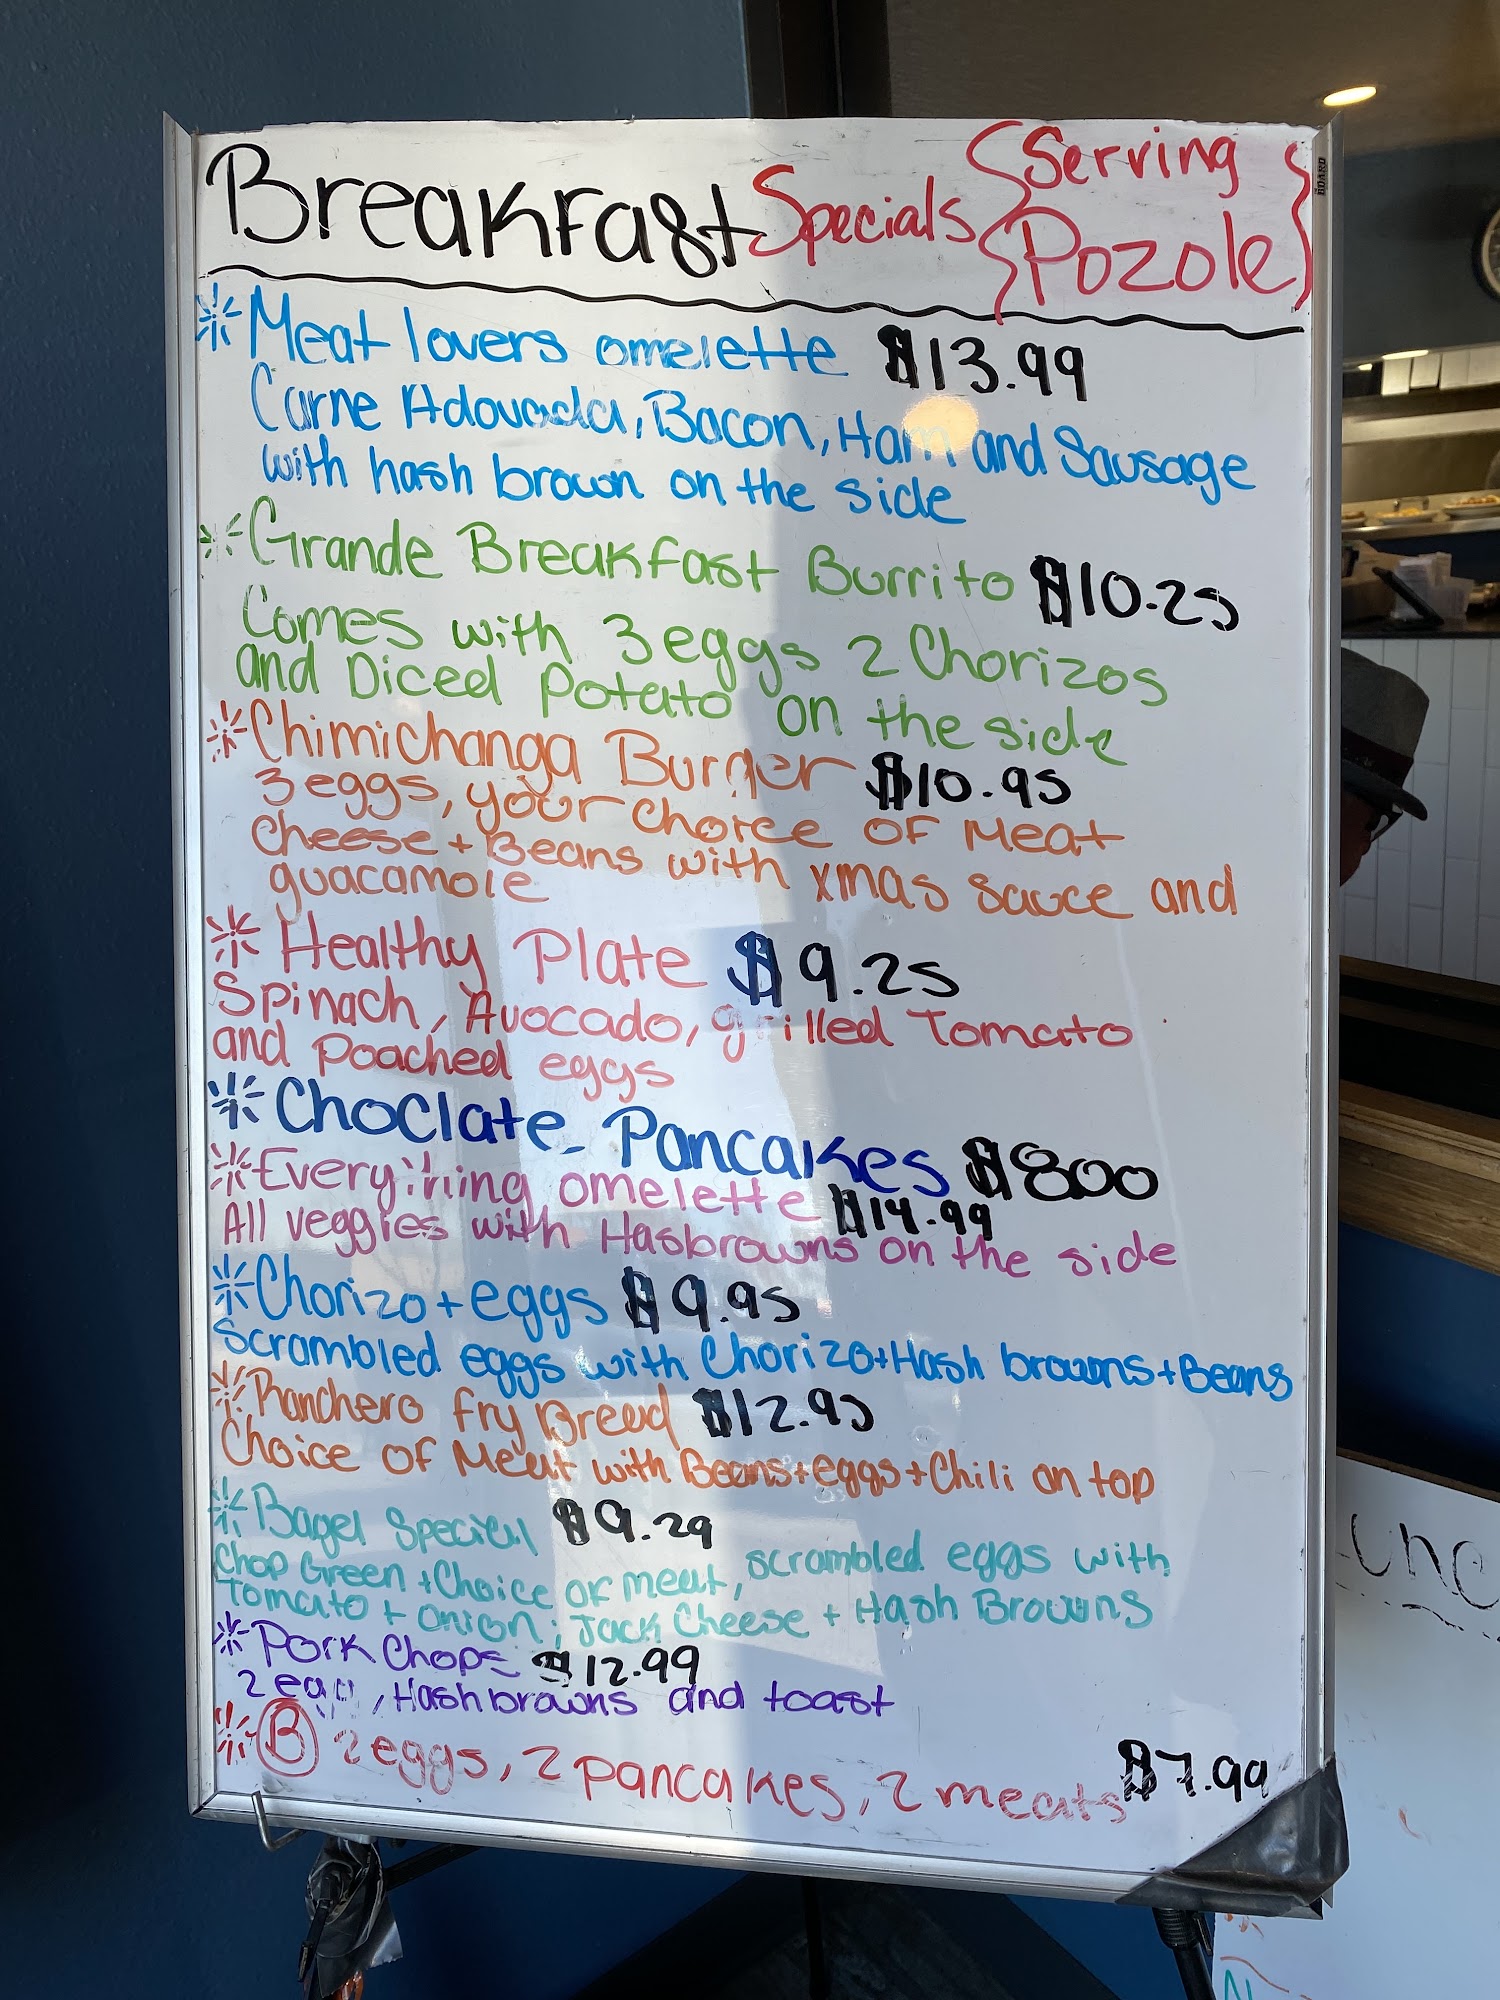 Breakfast Specials {Serving Pozole}
Meat lovers omelette $13.99
Carne Adovada, Bacon, Ham and Sausage
with hash brown on the side
Grande Breakfast Burrito $10.25
Comes with 3 eggs 2 Chorizos
and Diced Potato on the side
Chimichanga Burger $10.95
3 eggs, your choice of Meat
Cheese + Beans with xmas sauce and
guacamole
Healthy Plate $9.25
Spinach, Avocado, grilled Tomato
and poached eggs
Choclate Pancakes $8.00
Everything omelette $14.99
All veggies with Hasbrowns on the side
Chorizo + eggs $9.95
Scrambled eggs with Chorizo + Hash browns + Beans
Ranchero fry Bread $12.95
Choice of Meat with Beans + eggs + Chili on top
Bagel Special $9.29
Chop Green + Choice of meat, scrambled eggs with
Tomato + onion; Jack Cheese + Hash Browns
Pork Chops $12.99
2 egg, Hashbrowns and toast
B 2 eggs, 2 pancakes, 2 meats $7.99
BOARD